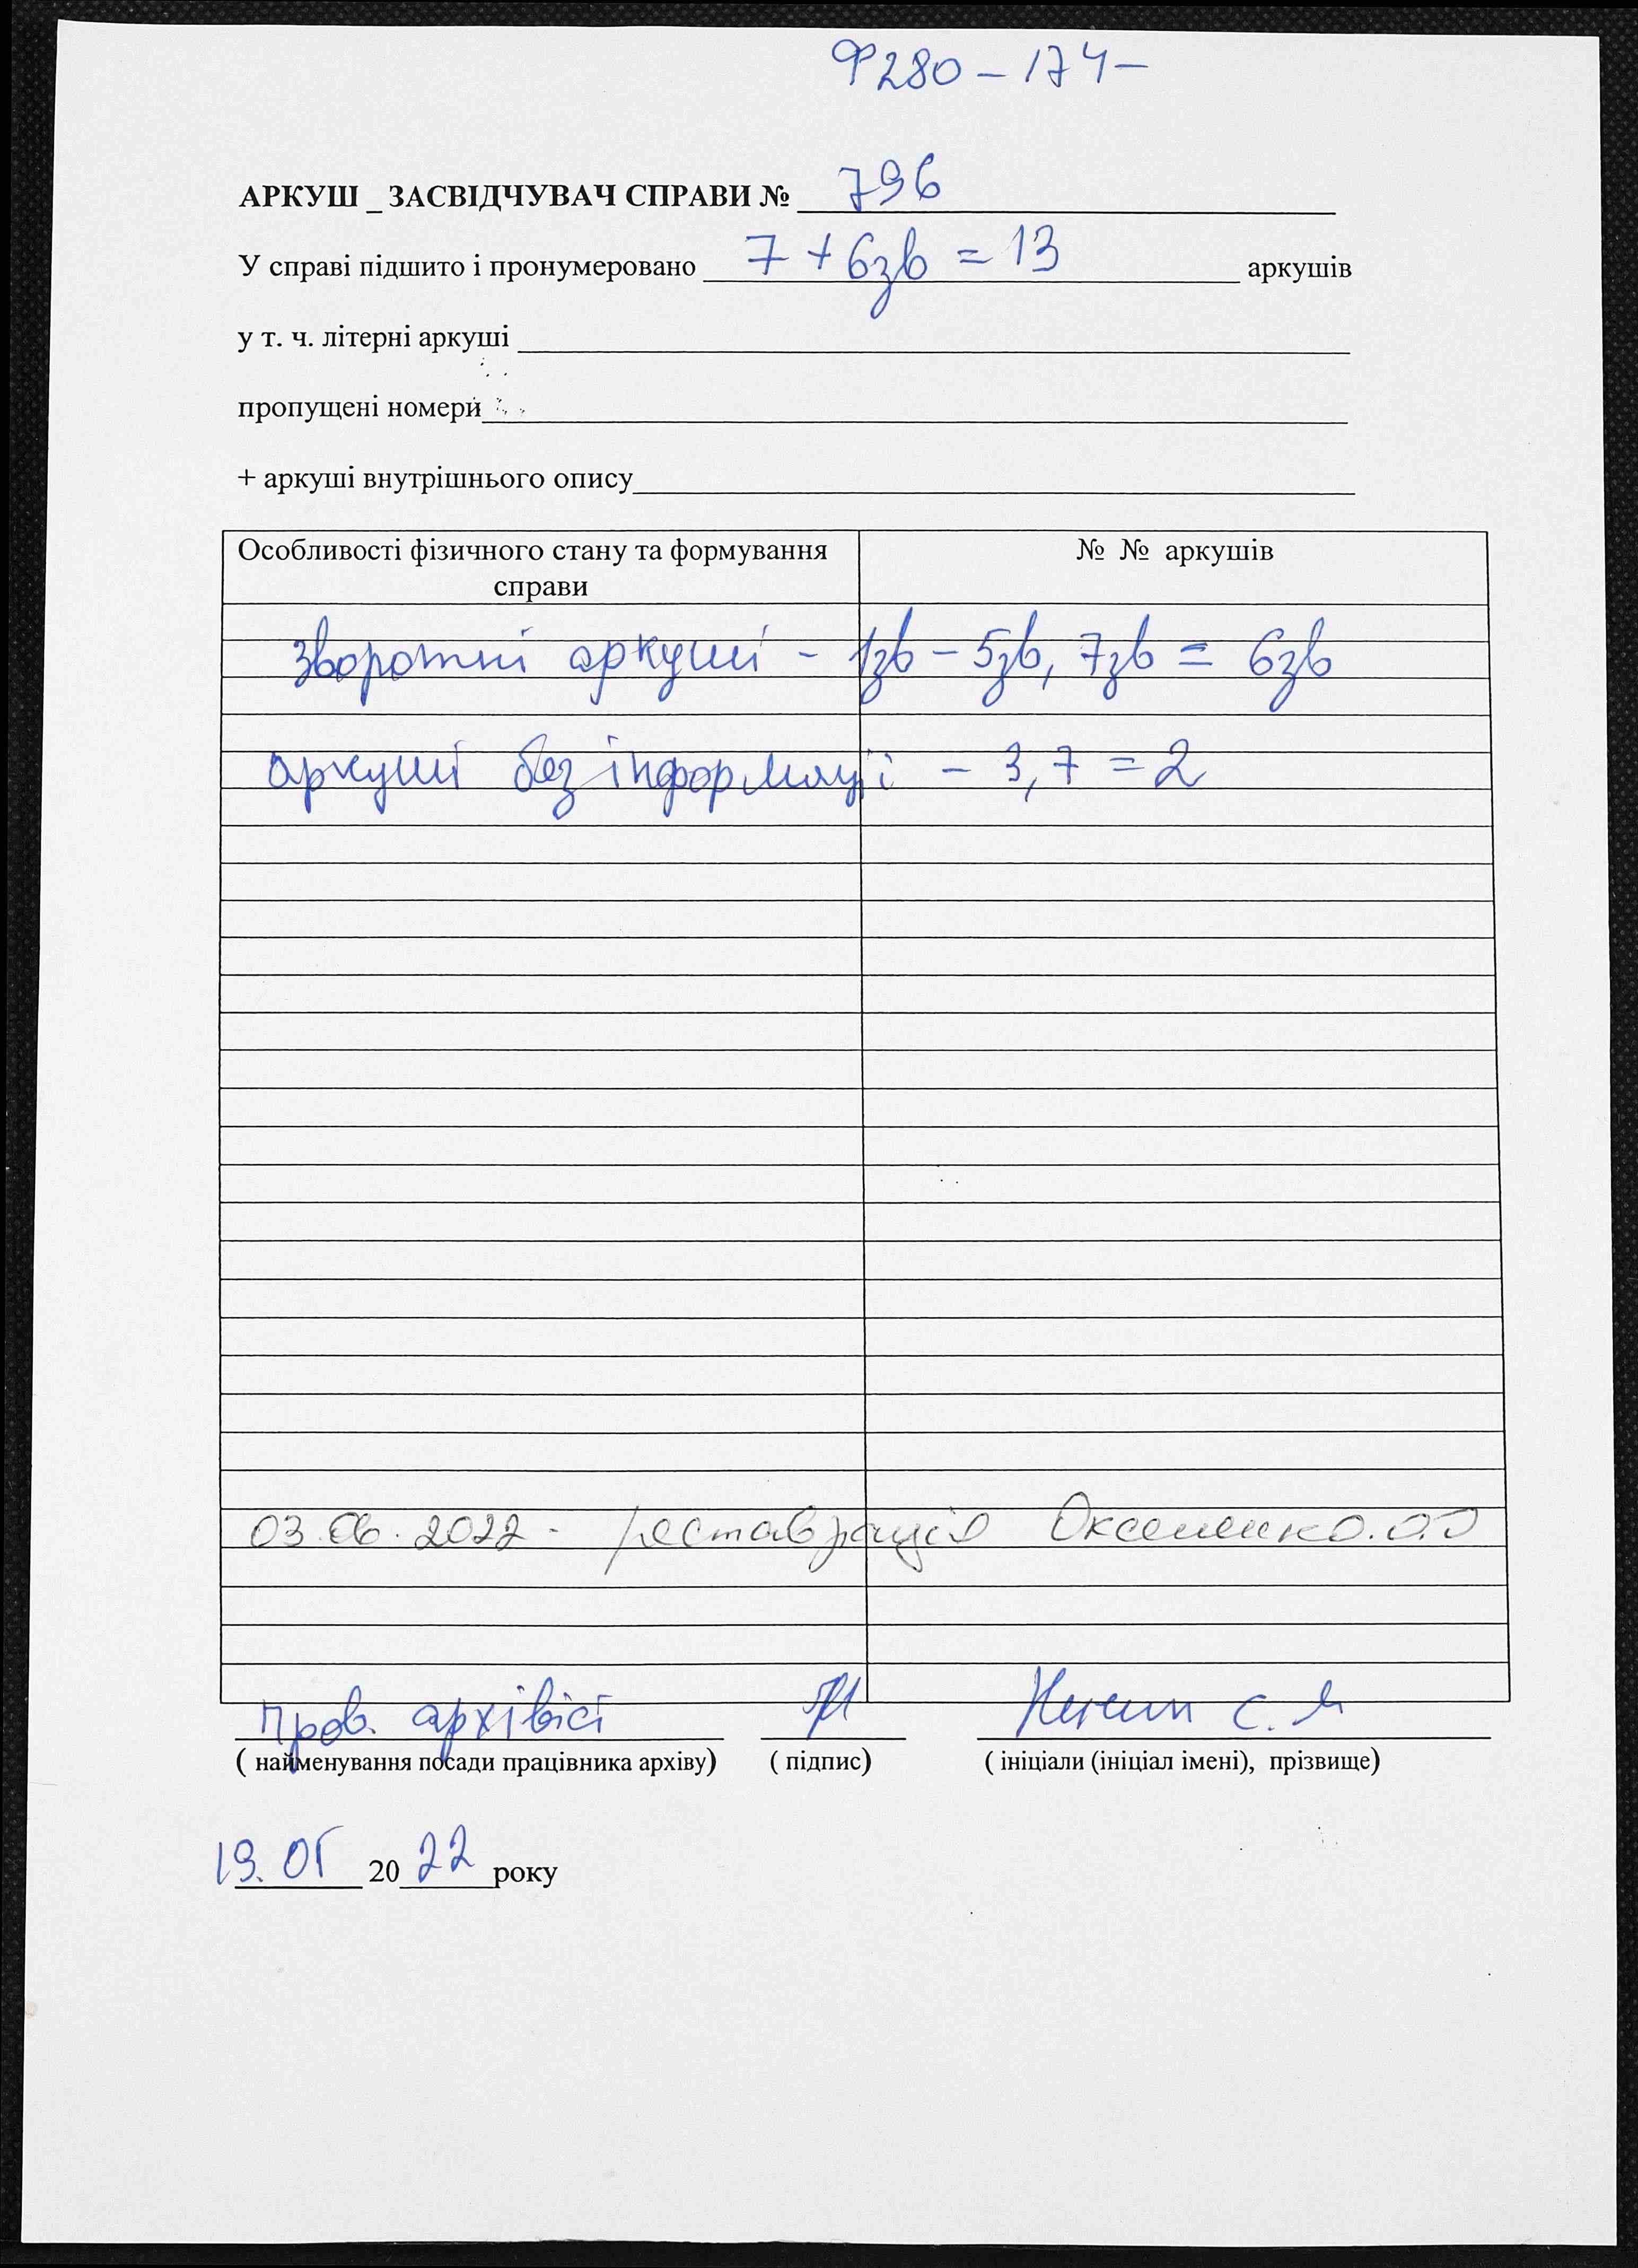 Ф280 – 174 –
АРКУШ _ ЗАСВІДЧУВАЧ СПРАВИ № 796
У справі підшито і пронумеровано 7 + 6зв = 13 аркушів
у т. ч. літерні аркуші
пропущені номери
+ аркуші внутрішнього опису
Особливості фізичного стану та формування справи
№ № аркушів
зворотні аркуші - 1зв – 5зв, 7зв = 6зв
аркуші без інформації – 3, 7 = 2
03.06.2022 - реставрація Оксененко.О.О
пров. архівіст С.
( найменування посади працівника архіву) ( підпис) ( ініціали (ініціал імені), прізвище)
20 22 року